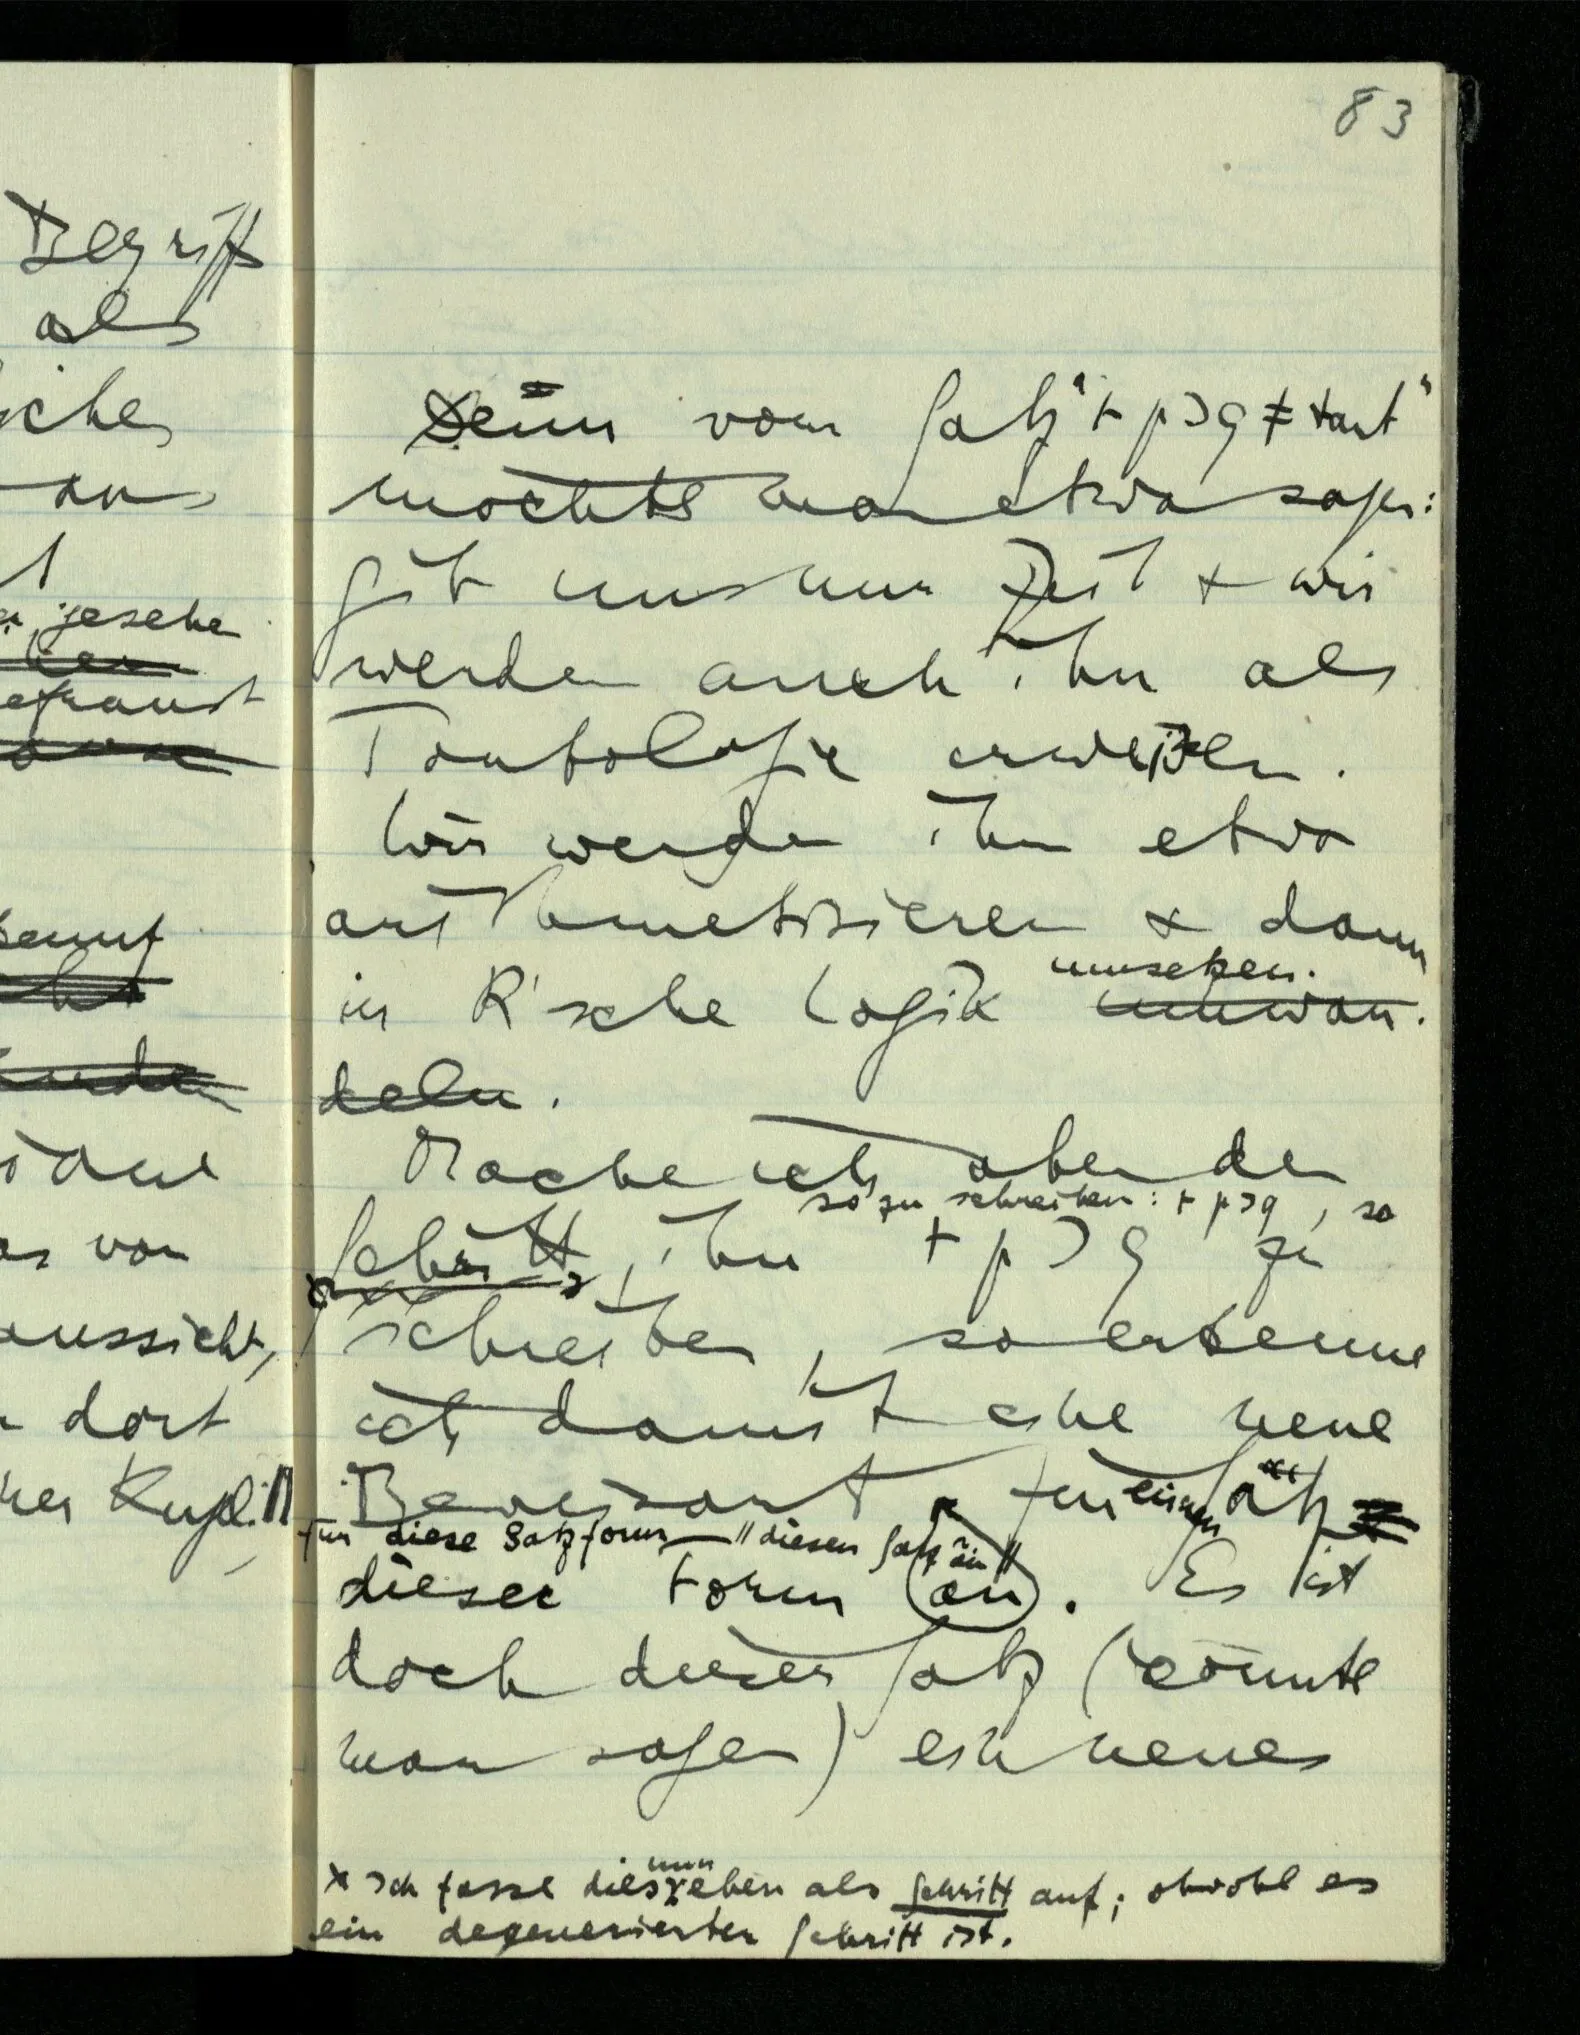 83
Begriff
als
gesehen
dort
aussicht,
Denn vom Satz "⊢ p⊃q ≠ taut"
möchte man etwa sagen:
gib uns nur Zeit & wir
werden auch ihn als
Tautologie erweisen.
Wir werden ihn etwa
arithmetisieren & dann
umsetzen.
in R'sche Logik umwan-
deln.
Mache ich aber den
so zu schreiben: ⊢ p⊃q, so
Schritt, ihn ⊢ p ⊃ q zu
schreiben, so erkenne
ich damit eine neue
Beweisart für einen Satz
für diese Satzform // diesen Satz an //
dieser Form an. Es ist
doch dieser Satz (könnte
man sagen) ein neues
nun
× Ich fasse dies eben als Schritt auf; obwohl es
ein degenerierter Schritt ist.